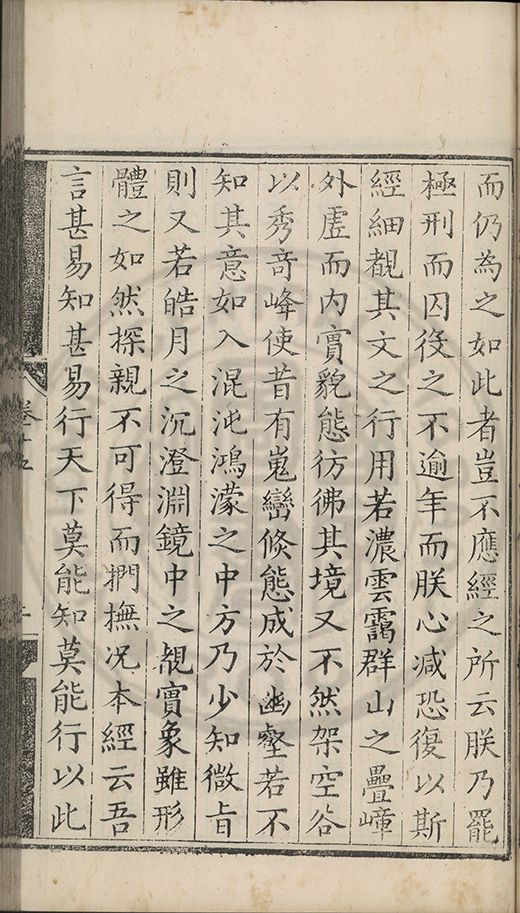 而仍為之如此者豈不應經之所云朕乃罷
極刑而囚役之不逾年而朕心減恐復以斯
經細覩其文之行用若濃雲靄群山之疊嶂
外虛而內實貌態彷彿其境又不然架空谷
以秀奇峰使昔有嵬巒倐態成於幽壑若不
知其意如入混沌鴻濛之中方乃少知微旨
則又若皓月之沉澄淵鏡中之覩實象雖形
體之如然探親不可得而捫撫况本經云吾
言甚易知甚易行天下莫能知莫能行以此
卷十五